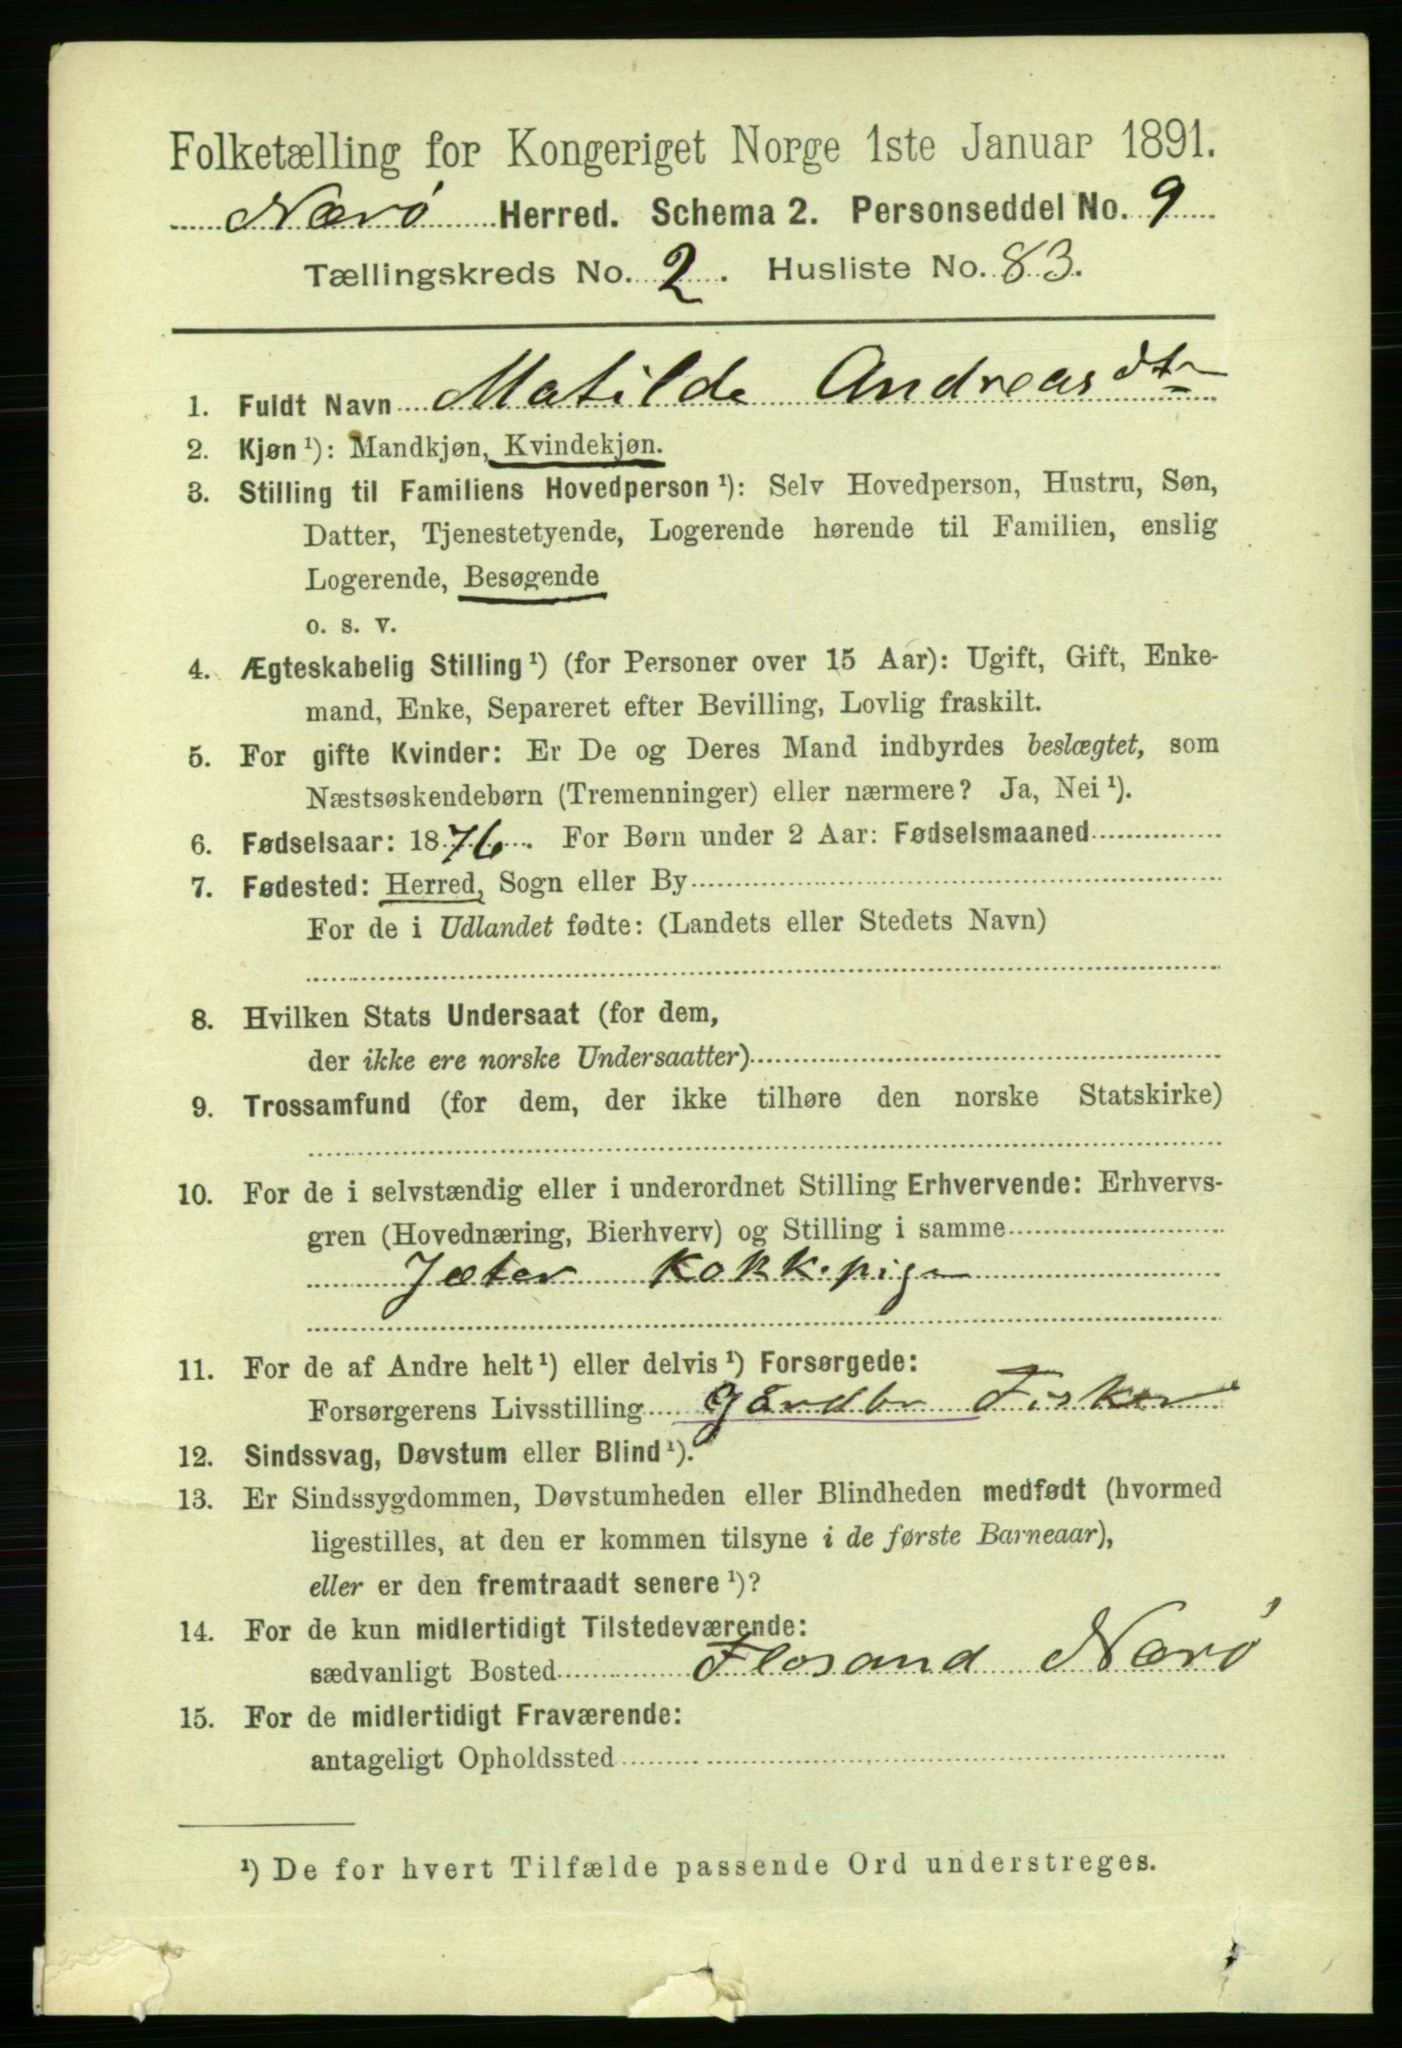 Folketælling for Kongeriget Norge 1ste Januar 1891.
Nærø Herred. Schema 2. Personseddel No. 9
Tællingskreds No. 2. Husliste No. 83.
1. Fuldt Navn Matilde Andreasdtr
2. Kjøn ¹): Mandkjøn, Kvindekjøn.
3. Stilling til Familiens Hovedperson ¹): Selv Hovedperson, Hustru, Søn,
Datter, Tjenestetyende, Logerende hørende til Familien, enslig
Logerende, Besøgende
o. s. v.
4. Ægteskabelig Stilling ¹) (for Personer over 15 Aar): Ugift, Gift, Enke-
mand, Enke, Separeret efter Bevilling, Lovlig fraskilt.
5. For gifte Kvinder: Er De og Deres Mand indbyrdes beslægtet, som
Næstsøskendebørn (Tremenninger) eller nærmere? Ja, Nei ¹).
6. Fødselsaar: 1876. For Børn under 2 Aar: Fødselsmaaned
7. Fødested: Herred, Sogn eller By
For de i Udlandet fødte: (Landets eller Stedets Navn)
8. Hvilken Stats Undersaat (for dem,
der ikke ere norske Undersaatter)
9. Trossamfund (for dem, der ikke tilhøre den norske Statskirke)
10. For de i selvstændig eller i underordnet Stilling Erhvervende: Erhvervs-
gren (Hovednæring, Bierhverv) og Stilling i samme
Jæter Kokkepige
11. For de af Andre helt ¹) eller delvis ¹) Forsørgede:
Forsørgerens Livsstilling Gårdbr Fisker
12. Sindssvag, Døvstum eller Blind ¹).
13. Er Sindssygdommen, Døvstumheden eller Blindheden medfødt (hvormed
ligestilles, at den er kommen tilsyne i de første Barneaar),
eller er den fremtraadt senere ¹)?
14. For de kun midlertidigt Tilstedeværende:
sædvanligt Bosted Flosand Nærø
15. For de midlertidigt Fraværende:
antageligt Opholdssted
¹) De for hvert Tilfælde passende Ord understreges.